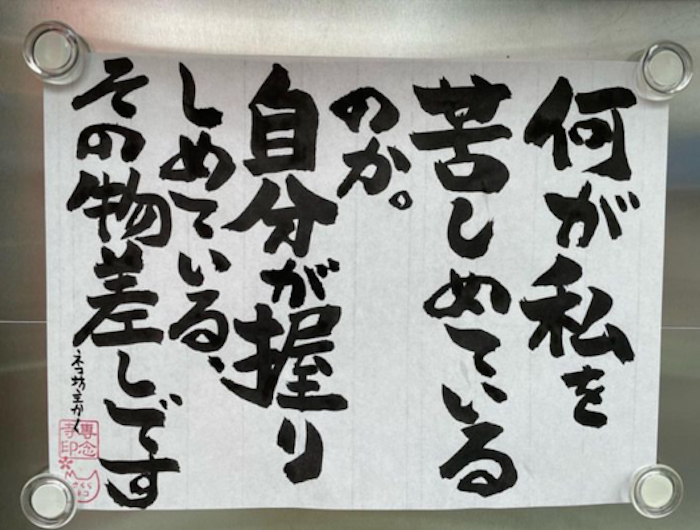 何が私を
苦しめている
のか。
自分が握り
しめている、
その物差しです
ネコ坊主かく
専念
寺印
さくら
ネコ